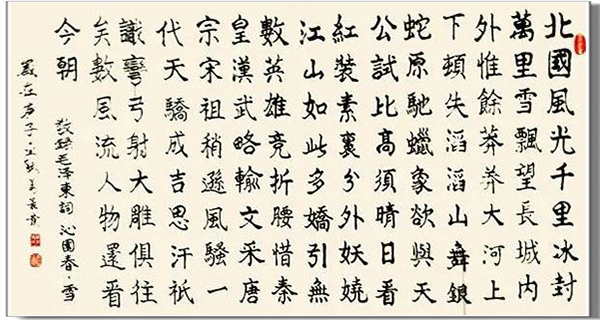 北國風光千里冰封
萬里雪飄望長城内
外惟餘莽莽大河上
下頓失滔滔山舞銀
蛇原馳蠟象欲與天
公試比高須晴日看
紅裝素裹分外妖嬈
江山如此多嬌引無
數英雄竞折腰惜秦
皇漢武略輸文采唐
宗宋祖稍遜風騷一
代天驕成吉思汗衹
識彎弓射大雕俱往
矣數風流人物還看
今朝
敬録毛泽東詞 沁園春·雪